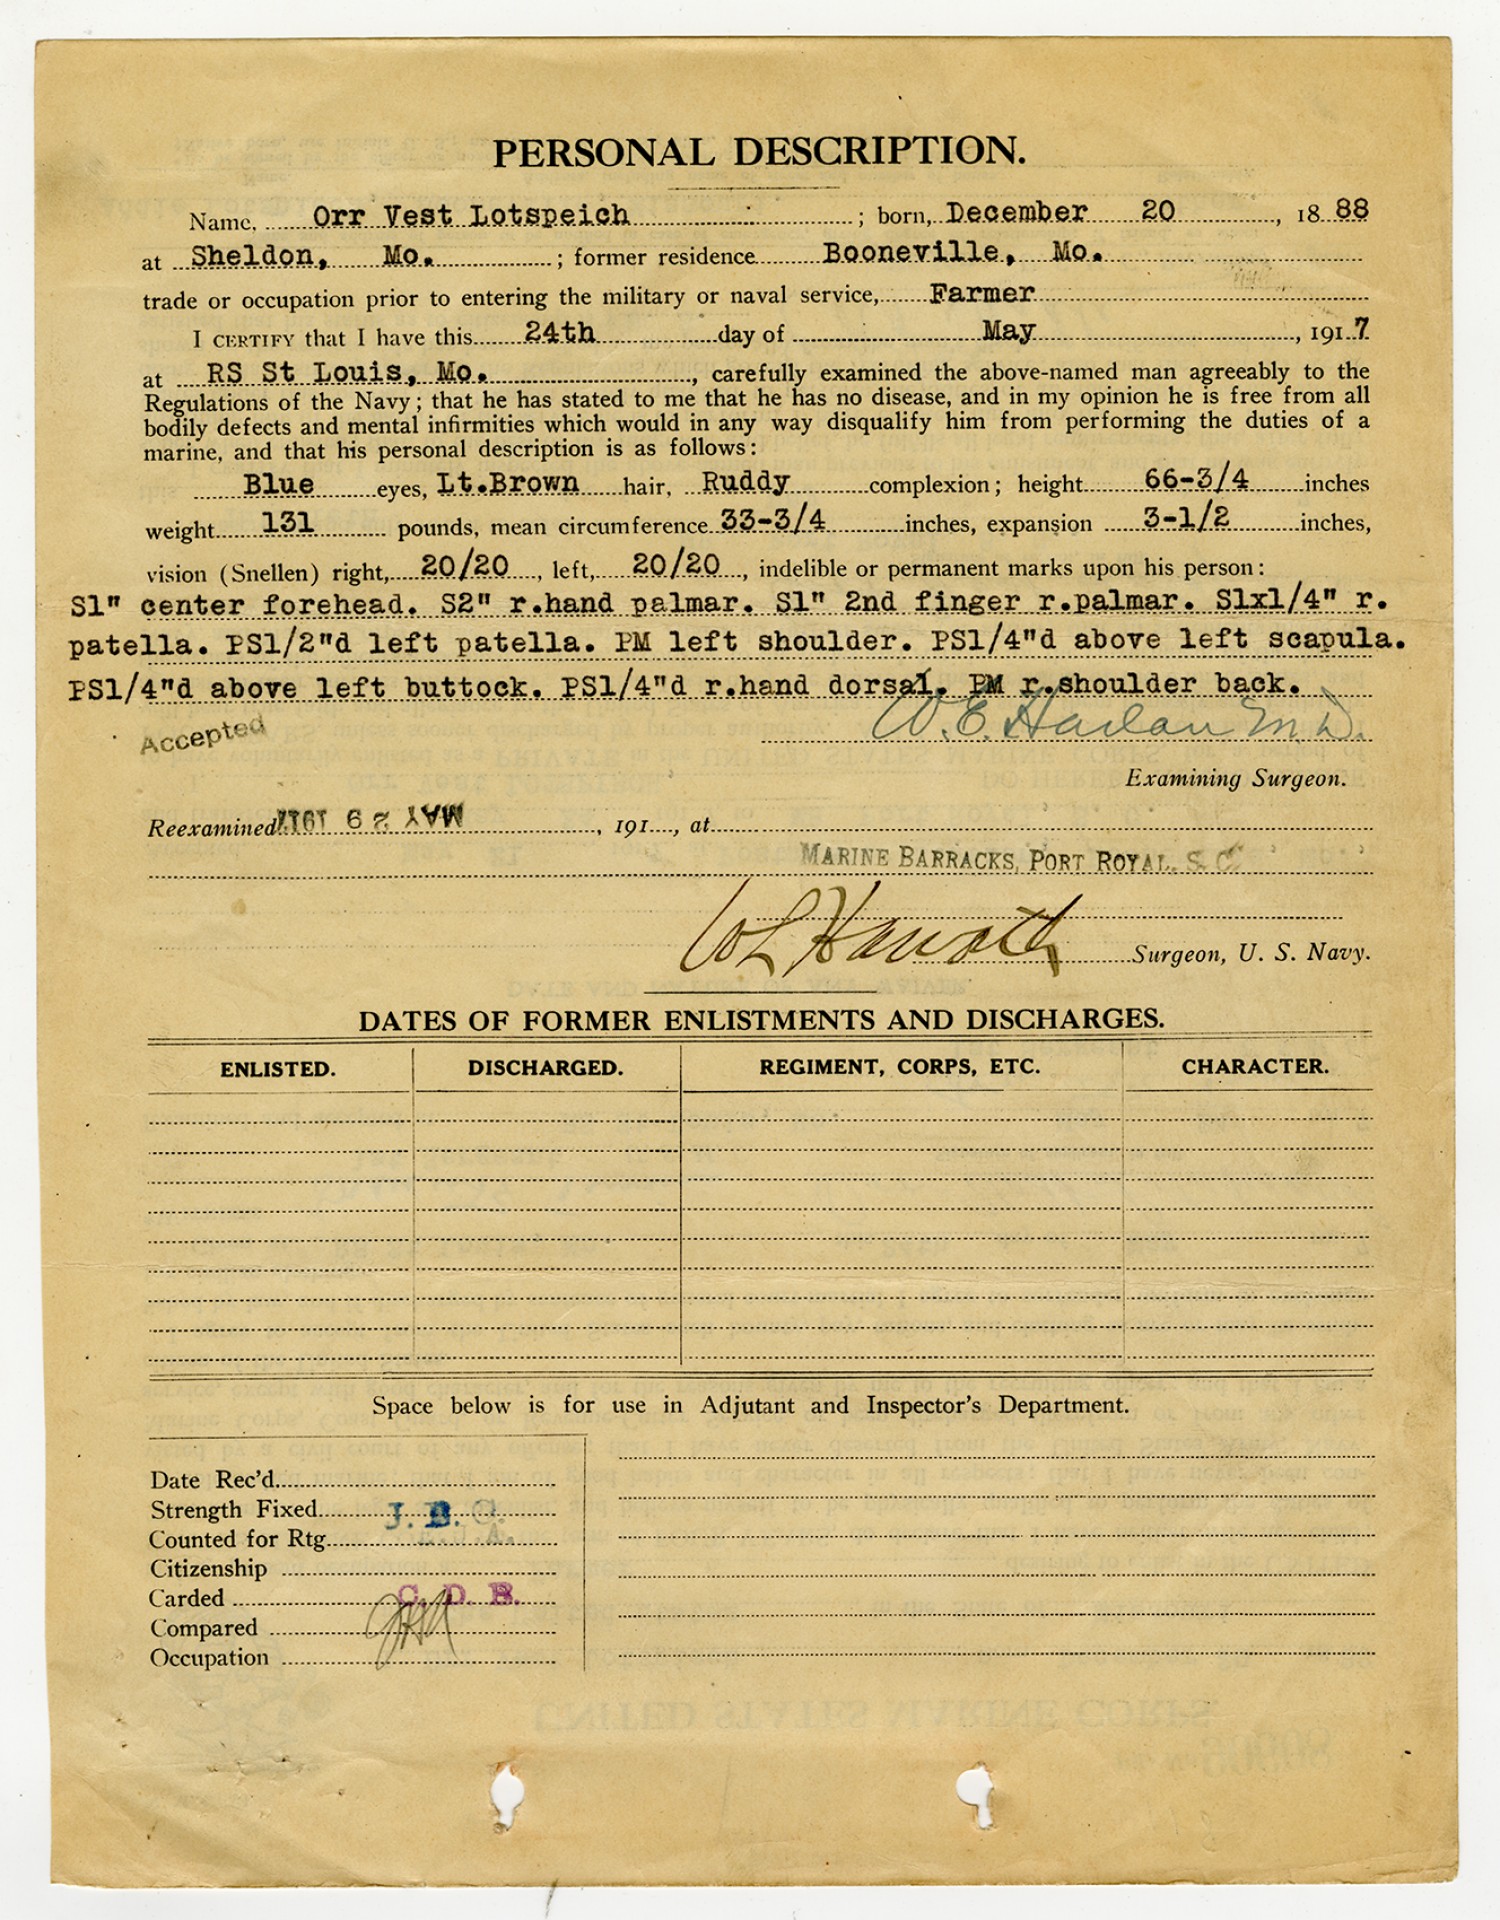 PERSONAL DESCRIPTION.
Name, Orr Vest Lotspeich ; born, December 20 , 18 88
at Sheldon, Mo. ; former residence Booneville, Mo.
trade or occupation prior to entering the military or naval service, Farmer
I CERTIFY that I have this 24th day of May , 191 7
at RS St Louis, Mo. , carefully examined the above-named man agreeably to the
Regulations of the Navy; that he has stated to me that he has no disease, and in my opinion he is free from all
bodily defects and mental infirmities which would in any way disqualify him from performing the duties of a
marine, and that his personal description is as follows:
Blue eyes, Lt.Brown hair, Ruddy complexion; height 66-3/4 inches
weight 131 pounds, mean circumference 33-3/4 inches, expansion 3-1/2 inches,
vision (Snellen) right, 20/20 , left, 20/20 , indelible or permanent marks upon his person:
S1" center forehead. S2" r.hand palmar. S1" 2nd finger r.palmar. S1x1/4" r.
patella. PS1/2"d left patella. PM left shoulder. PS1/4"d above left scapula.
PS1/4"d above left buttock. PS1/4"d r.hand dorsal. PM r.shoulder back.
Accepted W. E. Harlan M.D.
Examining Surgeon.
Reexamined MAY 29 1917 , 191 , at
MARINE BARRACKS, PORT ROYAL, S. C.
Surgeon, U. S. Navy.
DATES OF FORMER ENLISTMENTS AND DISCHARGES.
ENLISTED. DISCHARGED. REGIMENT, CORPS, ETC. CHARACTER.
Space below is for use in Adjutant and Inspector's Department.
Date Rec'd
Strength Fixed J. B. C.
Counted for Rtg.
Citizenship
Carded C. D. B.
Compared
Occupation